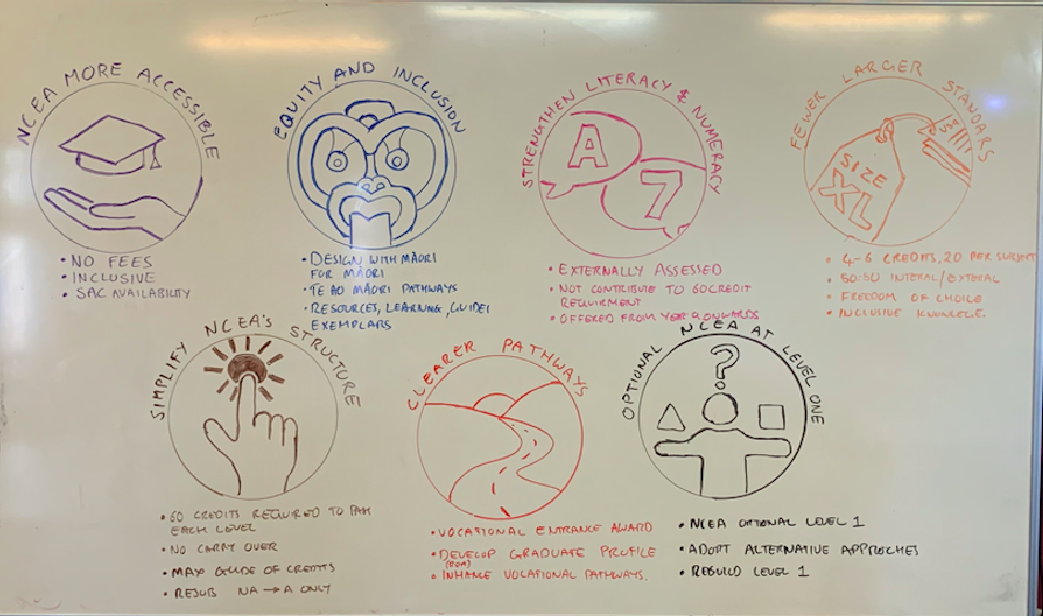 NCEA MORE ACCESSIBLE
• NO FEES
• INCLUSIVE
• SAC AVAILABILITY
EQUITY AND INCLUSION
• DESIGN WITH MĀORI
FOR MĀORI
• TE AO MĀORI PATHWAYS
• RESOURCES, LEARNING, GUIDES
EXEMPLARS
STRENGTHEN LITERACY & NUMERACY
A
7
• EXTERNALLY ASSESSED
• NOT CONTRIBUTE TO 60CREDIT
REQUIRMENT
• OFFERED FROM YEAR 9 ONWARDS
FEWER LARGER STANDARS
SIZE
XL
• 4-6 CREDITS, 20 PER SUBJECT
• 50:50 INTERAL/EXTERAL
• FREEDOM OF CHOICE
• INCLUSIVE
SIMPLIFY NCEA'S STRUCTURE
• 60 CREDITS REQUIRED TO PASS
EACH LEVEL
• NO CARRY OVER
• MAX OF CREDITS
• RESUB NA → A ONLY
CLEARER PATHWAYS
• VOCATIONAL ENTRANCE AWARD
• DEVELOP GRADUATE PROFILE
• INHANCE VOCATIONAL PATHWAYS.
OPTIONAL NCEA AT LEVEL ONE
?
• NCEA OPTIONAL LEVEL 1
• ADOPT ALTERNATIVE APPROCHES
• REBUILD LEVEL 1